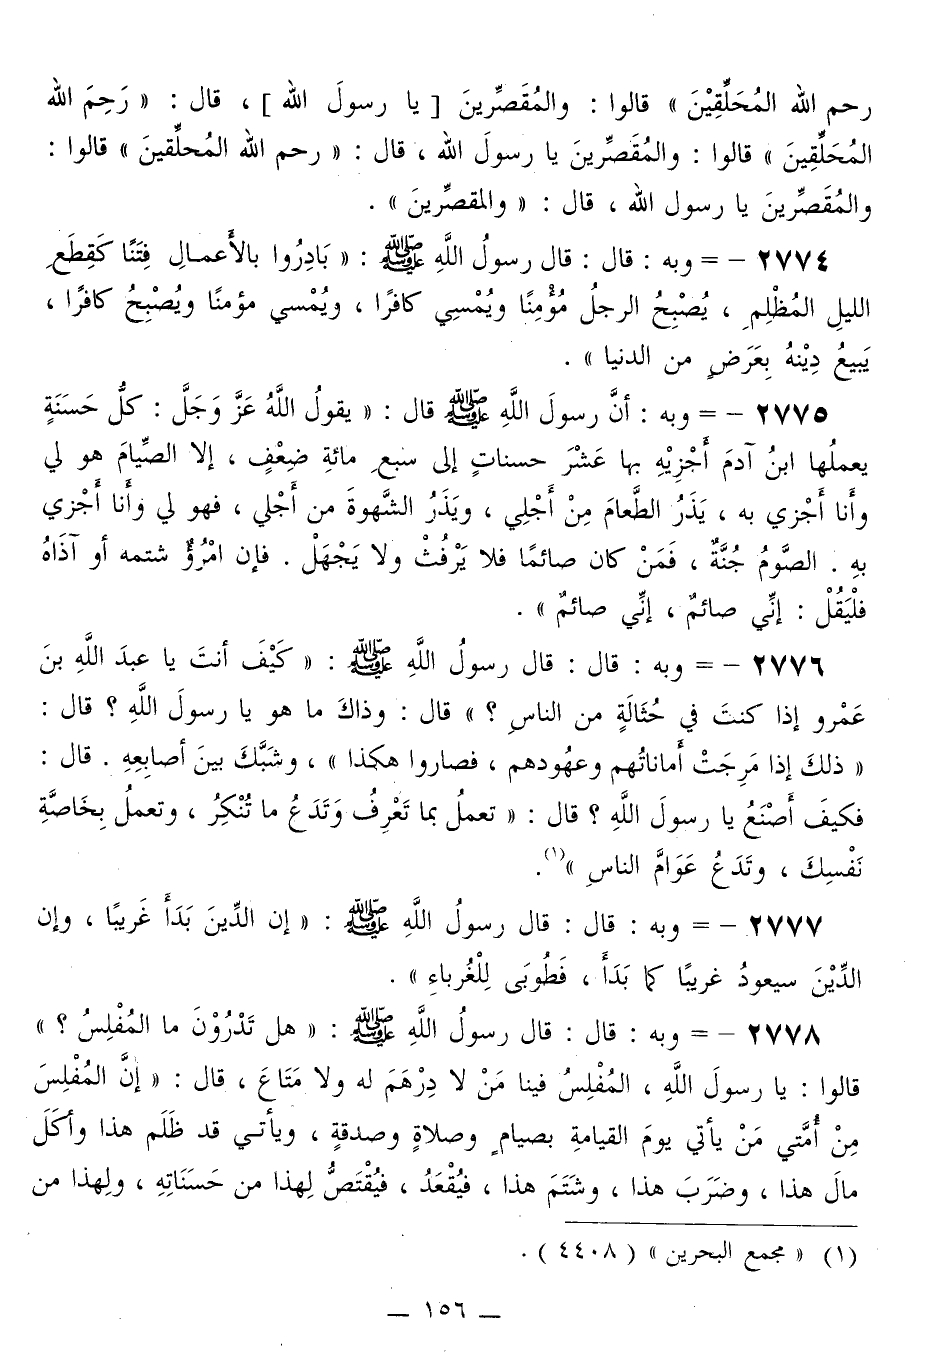 رحم الله المُحَلِّقِيْنَ » قالوا : والمُقَصِّرينَ [ يا رسولَ الله ] ، قال : « رَحِمَ الله
المُحَلِّقِينَ » قالوا : والمُقَصِّرينَ يا رسولَ الله ، قال : « رحم الله المُحلِّقينَ » قالوا :
والمُقَصِّرينَ يا رسول الله ، قال : « والمقصِّرينَ » .
٢٧٧٤ – = وبه : قال : قال رسولُ اللَّهِ ﷺ : « بَادِرُوا بالأَعمـالِ فِتَنًا كَقِطَعِ
الليلِ المُظْلِمِ ، يُصْبِحُ الرجلُ مُؤْمِنًا ويُمْسِي كافرًا ، ويُمْسي مؤمنًا ويُصْبِحُ كافرًا ،
يَبيعُ دِيْنهُ بِعَرَضٍ من الدنيا » .
٢٧٧٥ – = وبه : أنَّ رسولَ اللَّهِ ﷺ قال : « يقولُ اللَّهُ عَزَّ وَجَلَّ : كلُّ حَسَنَةٍ
يعملُها ابنُ آدمَ أَجْزِيْهِ بها عَشْرَ حسناتٍ إلى سبعِ مائةِ ضِعْفٍ ، إلا الصِّيامَ هو لي
وأَنا أَجْزي به ، يَذَرُ الطَّعامَ مِنْ أَجْلِي ، ويَذَرُ الشَّهوةَ من أَجْلي ، فهو لي وأَنا أَجْزي
بهِ . الصَّومُ جُنَّةٌ ، فَمَنْ كان صائمًا فلا يَرْفُثْ ولا يَجْهَلْ . فإن امْرُؤٌ شتمه أو آذَاهُ
فلْيَقُلْ : إنِّي صائمٌ ، إنِّي صائمٌ » .
٢٧٧٦ – = وبه : قال : قال رسولُ اللَّهِ ﷺ : « كَيْفَ أنتَ يا عبدَ اللَّهِ بنَ
عَمْرو إذا كنتَ في حُثَالَةٍ من الناسِ ؟ » قال : وذاكَ ما هو يا رسولَ اللَّهِ ؟ قال :
« ذلكَ إذا مَرِجَتْ أَماناتُهم وعهُودهم ، فصاروا هكذا » ، وشَبَّكَ بينَ أصابِعِهِ . قال :
فكيفَ أَصْنَعُ يا رسولَ اللَّهِ ؟ قال : « تعملُ بما تَعْرِفُ وَتَدَعُ ما تُنْكِرُ ، وتعملُ بِخَاصَّةِ
نَفْسِكَ ، وتَدَعُ عَوَامَّ الناسِ »(١).
٢٧٧٧ – = وبه : قال : قال رسولُ اللَّهِ ﷺ : « إن الدِّينَ بَدَأَ غَريبًا ، وإن
الدِّيْنَ سيعودُ غريبًا كما بَدَأَ ، فَطُوبَى لِلْغُرباءِ » .
٢٧٧٨ – = وبه : قال : قال رسولُ اللَّهِ ﷺ : « هل تَدْرُوْنَ ما المُفْلِسُ ؟ »
قالوا : يا رسولَ اللَّهِ ، المُفْلِسُ فينا مَنْ لا دِرْهَمَ له ولا مَتَاعَ ، قال : « إنَّ المُفْلِسَ
مِنْ أُمَّتي مَنْ يأتي يومَ القيامةِ بصيامٍ وصلاةٍ وصدقةٍ ، ويأتـي قد ظَلَم هذا وأكَلَ
مالَ هذا ، وضَرَبَ هذا ، وشَتَمَ هذا ، فيُقْعَدُ ، فيُقْتَصُّ لِهذا من حَسَنَاتِهِ ، ولِهذا من
(١) « مجمع البحرين » ( ٤٤٠٨ ) .
— ١٥٦ —